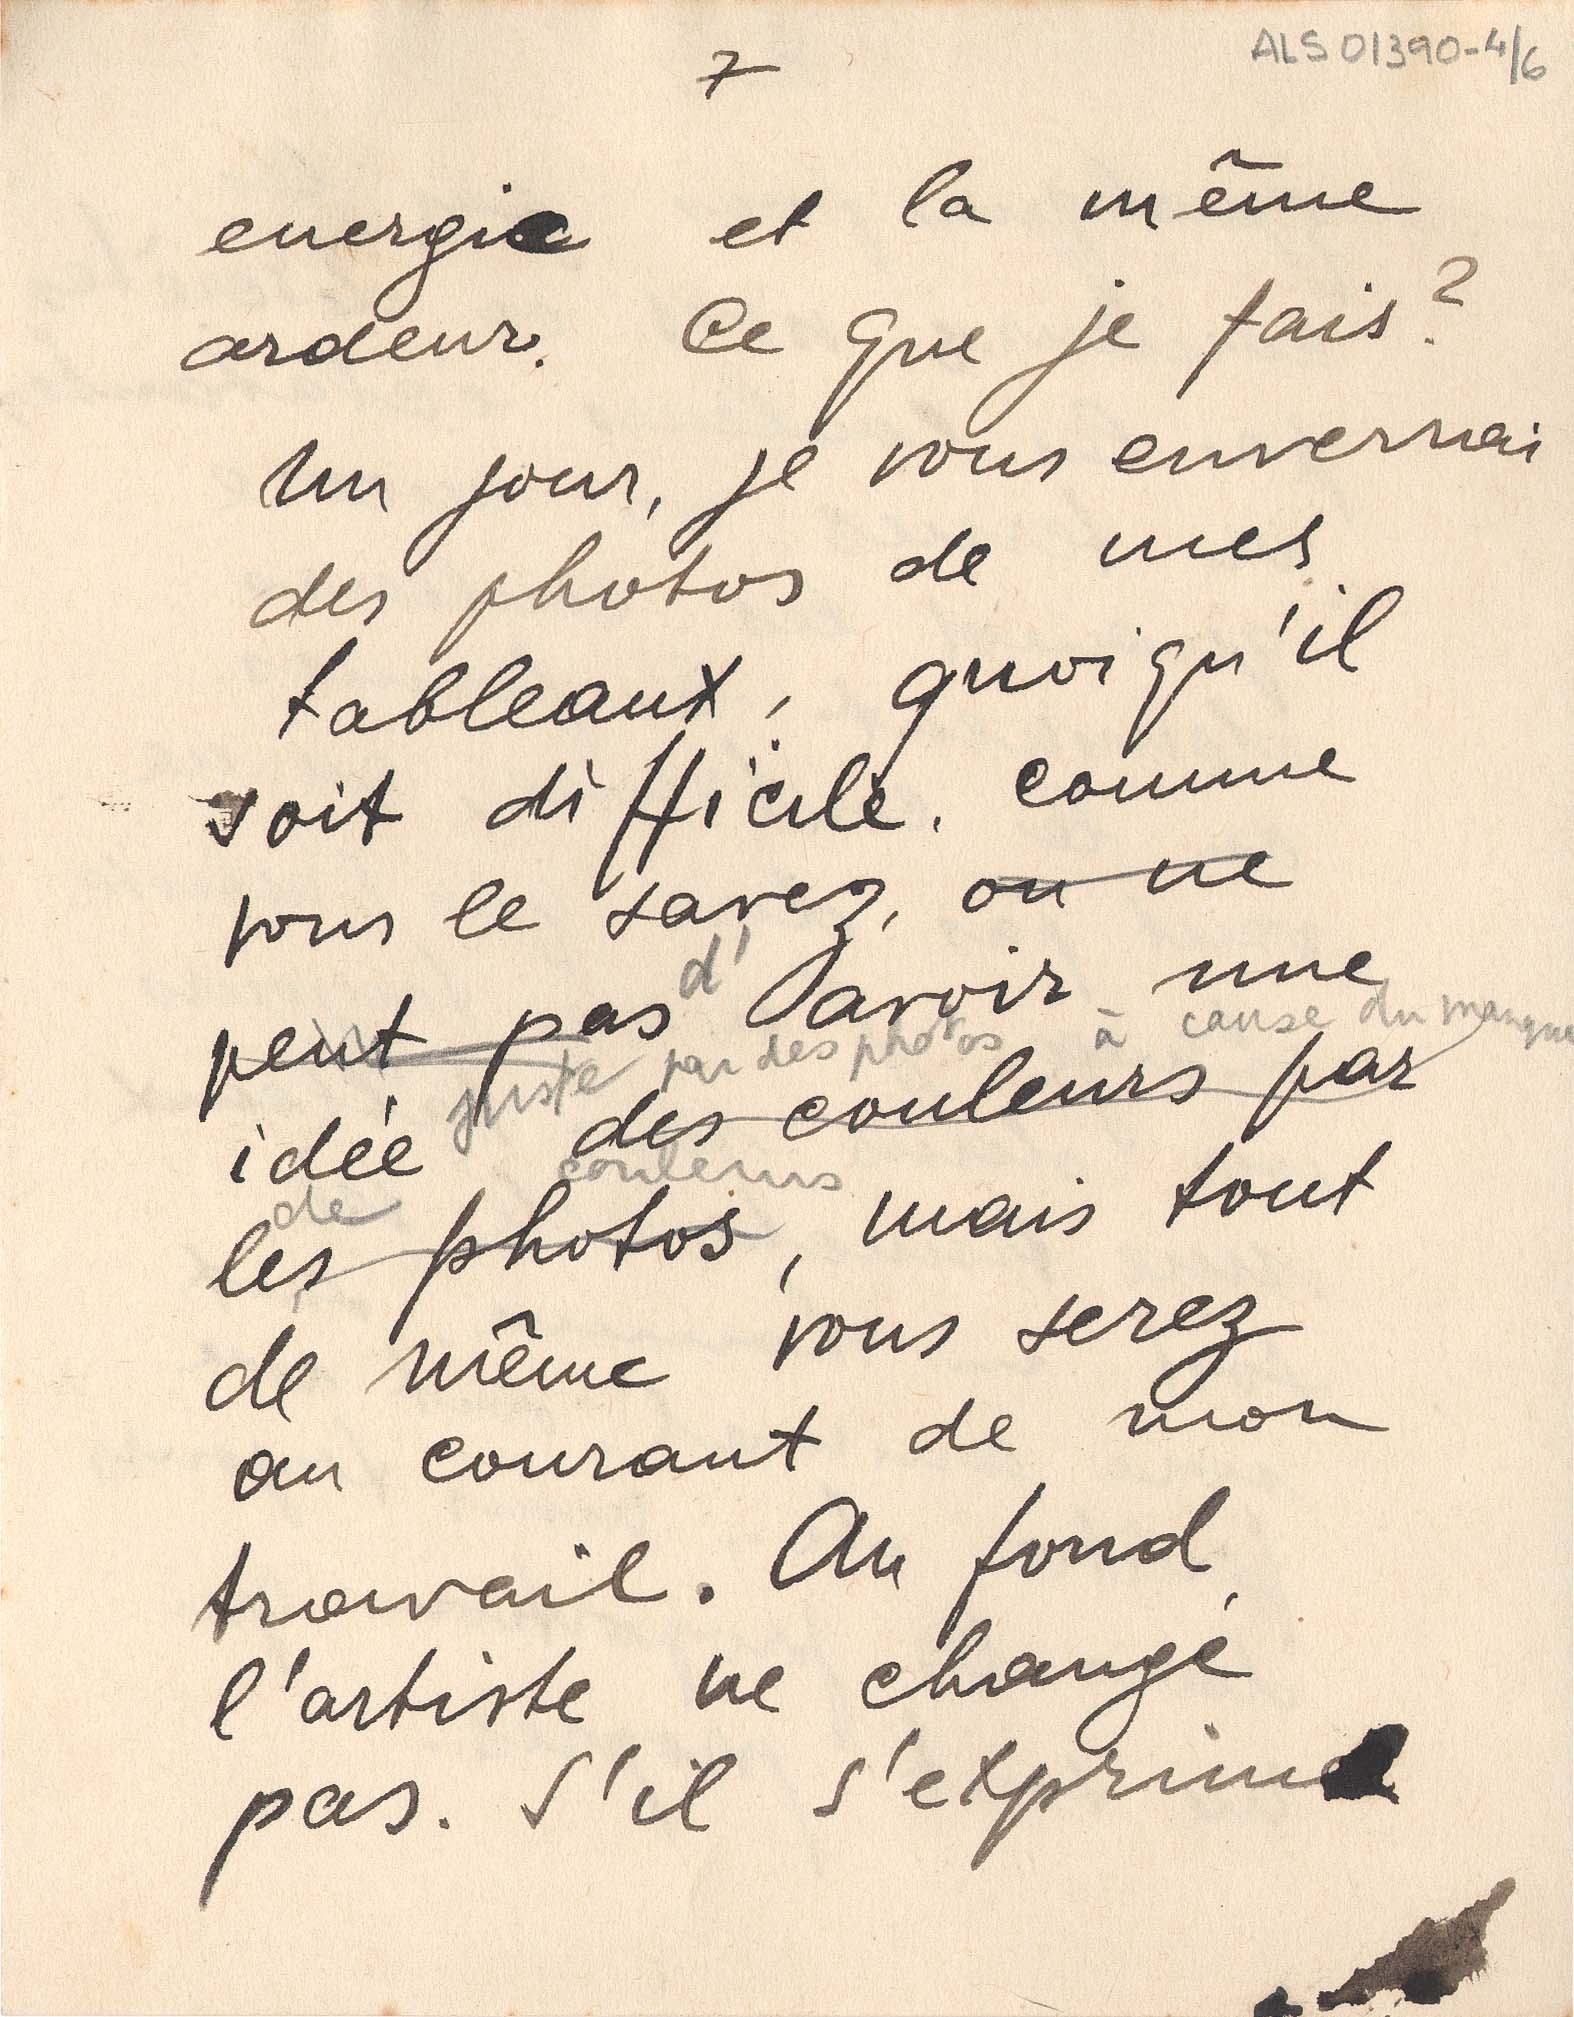 7
ALS 01390-4/6
energie et la même
ardeur. Ce que je fais?
Un jour, je vous enverrai
des photos de mes
tableaux, quoiqu'il
soit difficile. comme
vous le savez, on ne
peut pas d'avoir une
juste par des photos à cause du manque
idée des couleurs par
de couleurs
les photos, mais tout
de même vous serez
au courant de mon
travail. Au fond,
l'artiste ne change
pas. S'il s'exprime